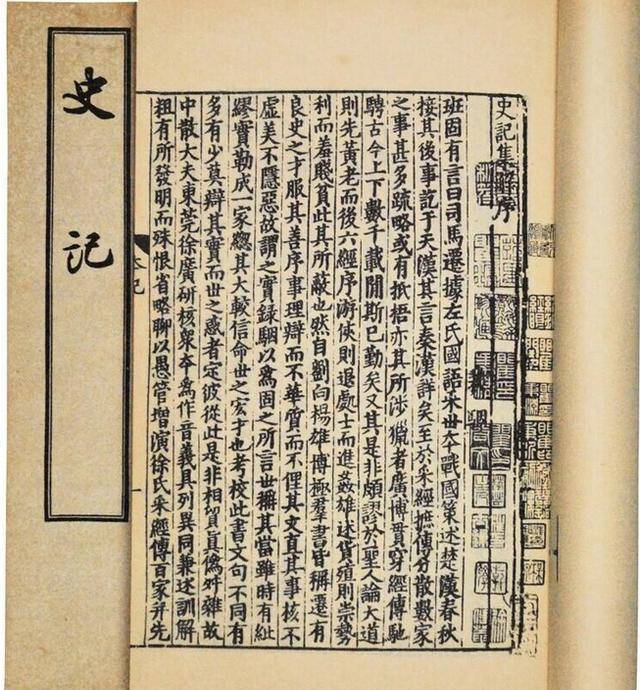 史記
史記集解序
班固有言曰司馬遷據左氏國語采丗夲戰國策述楚漢春秋
接其後事訖于天漢其言秦漢詳矣至於采經摭傳分散數家
之事甚多疏略或有抵捂亦其所涉獵者廣博貫穿經傳馳
騁古今上下數千載閒斯已勤矣又其是非頗謬於聖人論大道
則先黃老而後六經序游俠則退處士而進姦雄述貨殖則崇勢
利而羞賤貧此其所蔽也然自劉向楊雄博極羣書皆稱遷有
良史之才服其善序事理辯而不華質而不俚其文直其事核不
虛美不隱惡故謂之實録駰以爲固之所言世稱其當雖時有紕
繆實勒成一家緫其大較信命世之宏才也考校此書文句不同有
多有少莫辯其實而世之惑者定彼從此是非相貿眞僞舛雜故
中散大夫東莞徐廣研核衆夲爲作音義具列異同兼述訓解
粗有所發明而殊恨省略聊以愚管增演徐氏采經傳百家并先